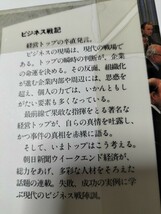 ビジネス戦記
経営トップの率直発言。
ビジネスの現場は、現代の戦場で
ある。トップの瞬時の判断が、企業
の命運を決める。その反面、組織化
が進む企業内部や周辺には、思惑を
超え、個人の力では、いかんともし
がたい要素も多くなっている。
最前線で果敢の指揮をとる著名な
経営トップが、自らの真情を吐露し、
かつ事件の真相を赤裸に語る。
そして、いまトップはこう考える。
朝日新聞ウイークエンド経済が、
総力をあげ、多彩な人材をそろえた
話題の連載。失敗、成功の実例に学
ぶ現代のビジネス戦陣訓。